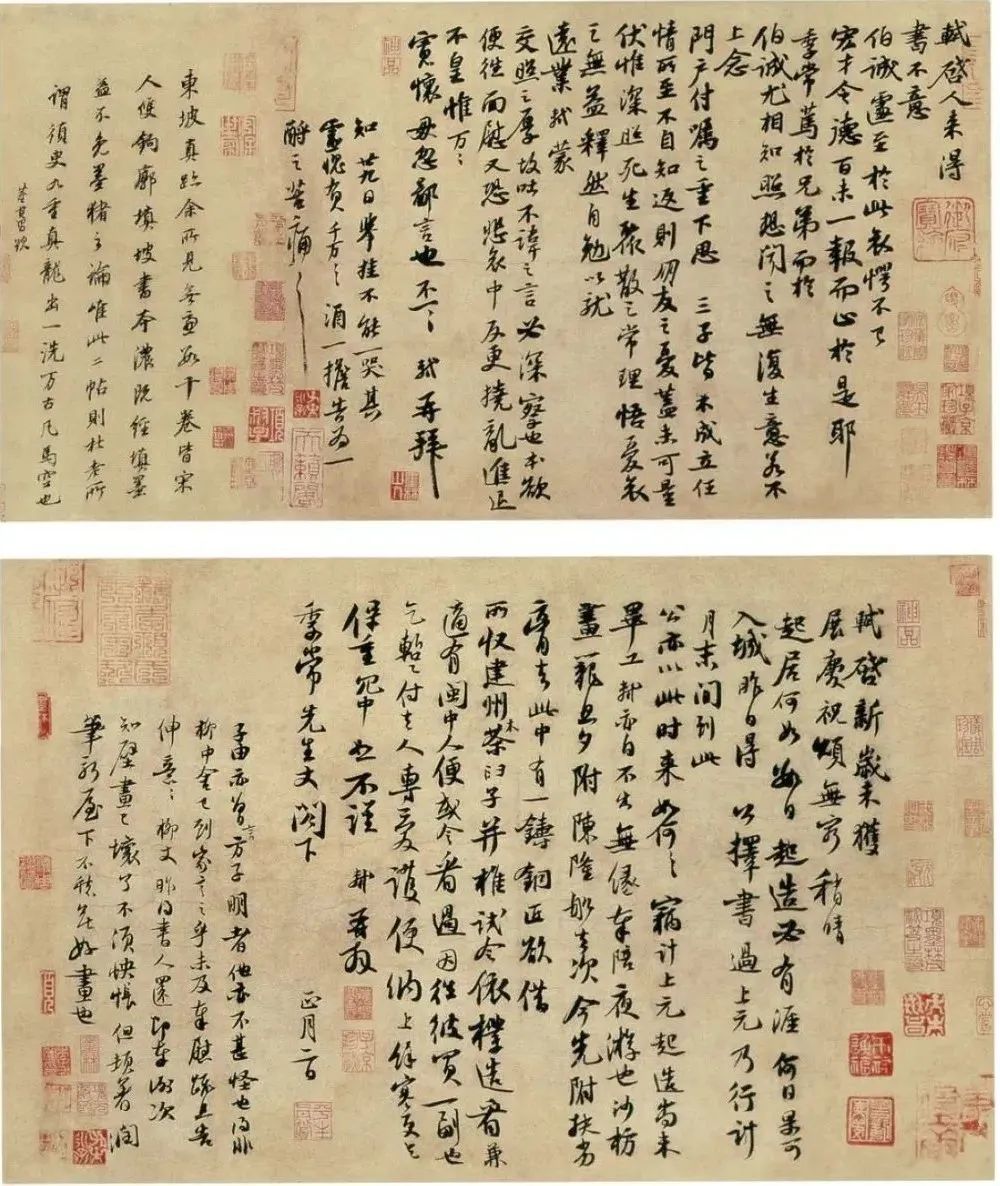 軾啓人来得
書不意
伯誠遽至於此哀愕不已
宏才令德百未一報而止於是耶
季常篤於兄弟而於
伯誠尤相知照想聞之無復生意若不
上念
門户付囑之重下思 三子皆未成立任
情所至不自知返則朋友之憂蓋未可量
伏惟深照死生聚散之常理悟憂哀
之無益釋然自勉以就
遠業軾蒙
交照之厚故吐不諱之言必深察也本欲
便往面慰又恐悲哀中反更撓亂進退
不皇惟万万
寬懷毋忽鄙言也不一一 軾再拜
知廿九日舉挂不能一哭其
靈愧負千万千万酒一擔告为一
酹之苦痛苦痛
東坡真跡余所見無慮數十卷皆宋
人雙鉤廓填坡書本濃既經填墨
益不免墨猪之論唯此二帖則杜老所
謂須臾九重真龍出一洗万古凡馬空也
董其昌題
軾啓新歲未獲
展慶祝頌無窮稍晴
起居何如數日起造必有涯何日果可
入城昨日得公擇書過上元乃行計
月末間到此
公亦以此时来如何如何竊計上元起造尚未
畢工軾亦自不出無緣奉陪夜游也沙枋
畫籠旦夕附陳隆船去次今先附扶劣
膏去此中有一鑄銅匠欲借
所收建州木茶臼子并椎試令依樣造看兼
適有閩中人便或令看過因往彼買一副也
乞暫付去人專愛護便納上餘寒更乞
保重冗中恕不謹軾再拜
季常先生丈閣下 正月二日
子由亦曾言方子明者他亦不甚怪也得非
柳中舍已到家言之乎未及奉慰疏且告
伸意伸意柳丈昨得書人還即奉謝次
知壁畫已壞了不須怏悵但頓著潤
筆新屋下不愁無好畫也